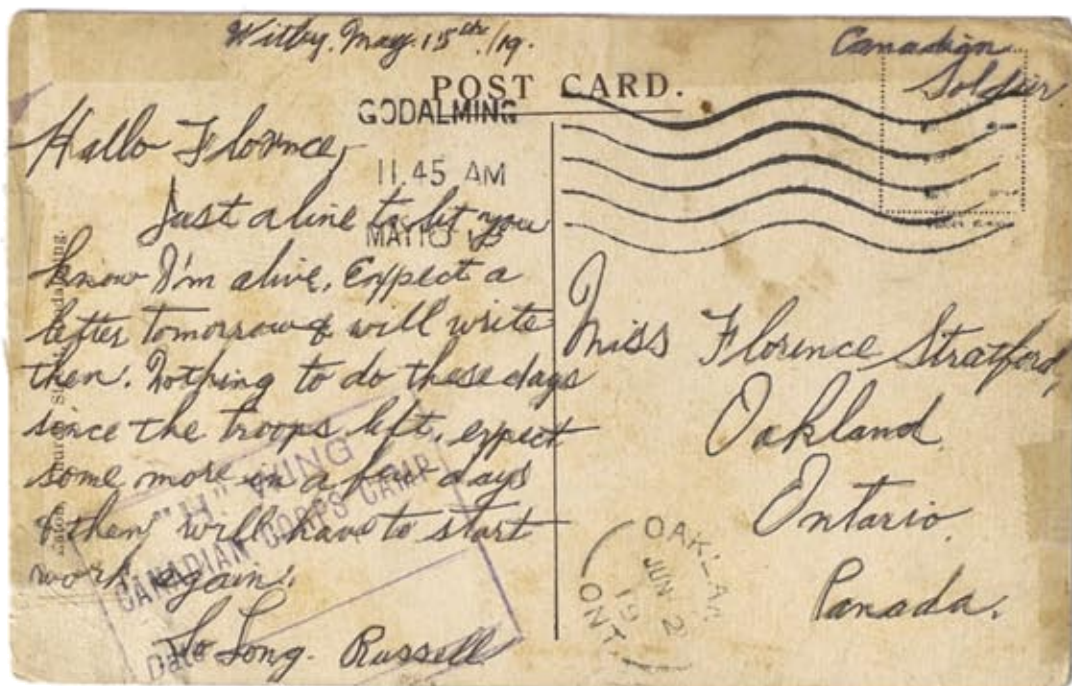 Witley. May. 15th/19.
Canadian
Soldier
POST CARD.
GODALMING
11.45 AM
MAY
Hallo Florence,
Just a line to let you
know I'm alive. Expect a
letter tomorrow & will write
then. Nothing to do these days
since the troops left, expect
some more in a few days
& then will have to start
work again.
So Long. Russell
Miss Florence Stratford,
Oakland
Ontario,
Canada.
"H" WING
CANADIAN CORPS CAMP
Date
OAKLA
JUN 2
19
ONT